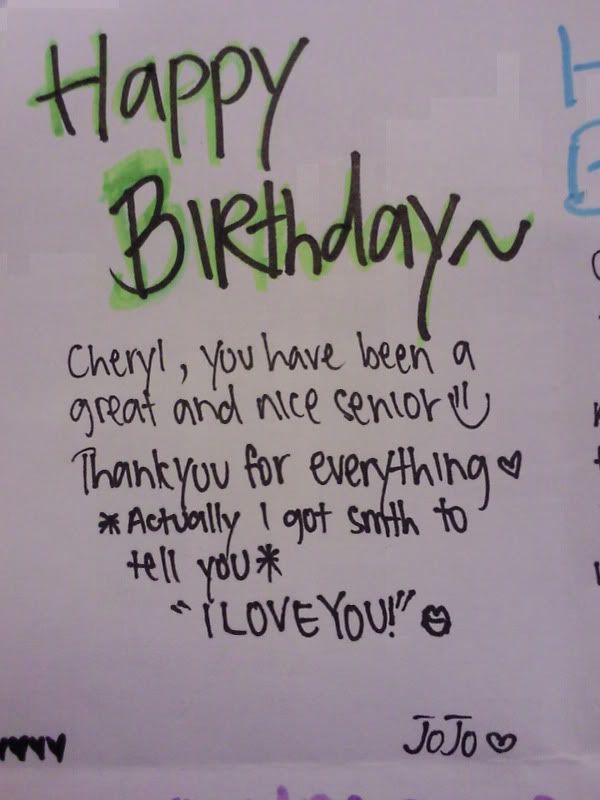 Happy
Birthday~
Cheryl, you have been a
great and nice senior
Thankyou for everything ♡
*Actually I got smth to
tell you*
"I LOVE YOU!"
JoJo ♡